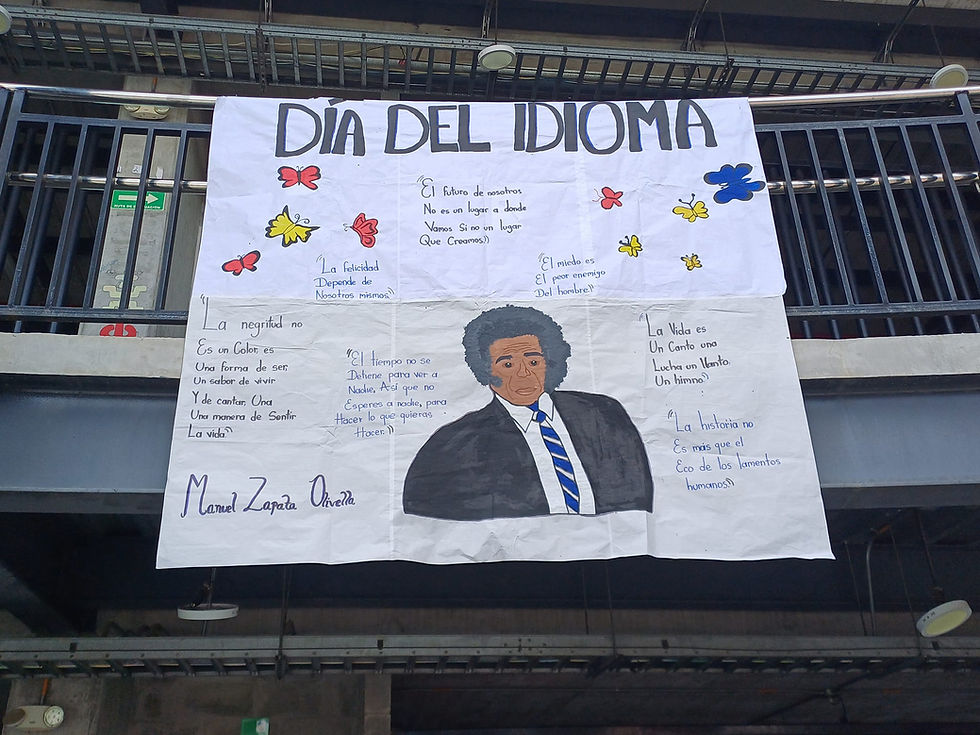 DÍA DEL IDIOMA
"El futuro de nosotros
No es un lugar a donde
Vamos Si no un lugar
Que Creamos"
"La felicidad
Depende de
Nosotros mismos"
"El miedo es
El peor enemigo
Del hombre"
"La negritud no
Es un Color, es
Una forma de ser,
Un sabor de vivir
Y de cantar, Una
Una manera de Sentir
La vida"
"El tiempo no se
Detiene para ver a
Nadie, Así que no
Esperes a nadie, para
Hacer lo que quieras
Hacer."
"La Vida es
Un Canto una
Lucha un llanto.
Un himno"
"La historia no
Es más que el
Eco de los lamentos
humanos"
Manuel Zapata Olivella